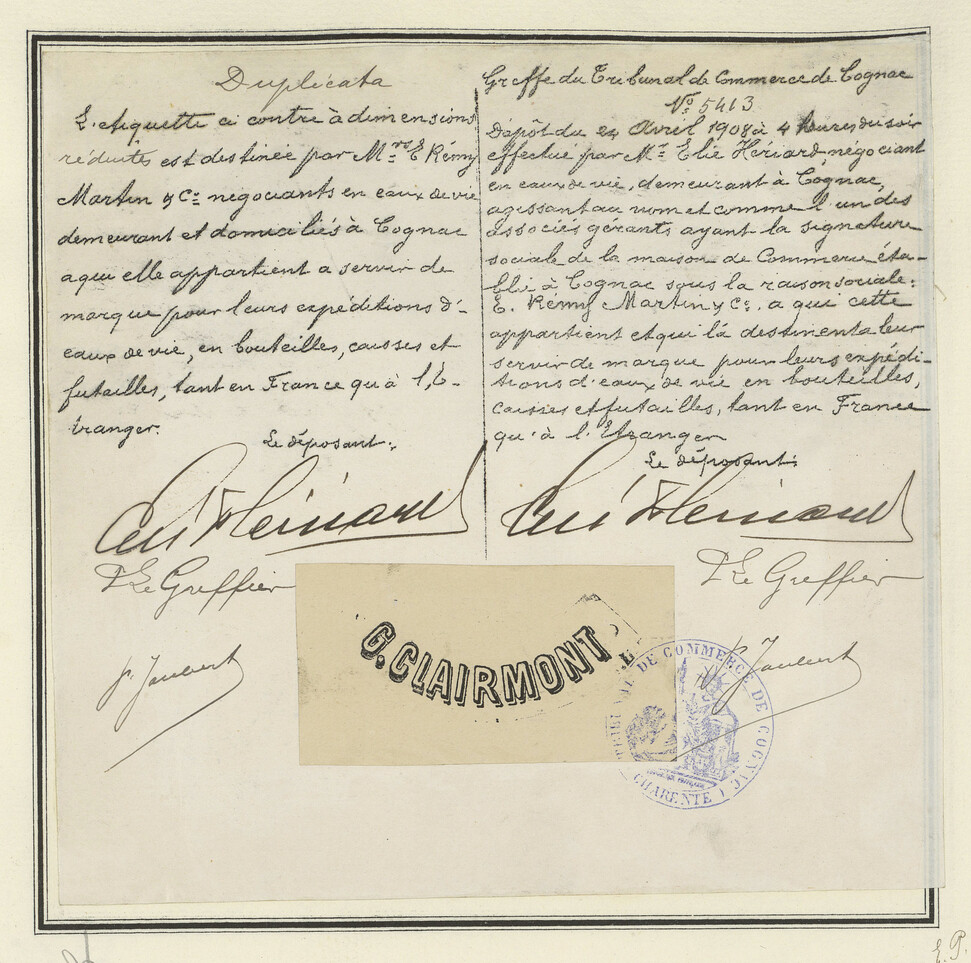 Duplicata
L'etiquette ci contre à dimensions
réduites est destinée par Mrs E Rémy
Martin & Co negociants en eaux de vie
demeurant et domiciliés à Cognac
a qui elle appartient a servir de
marque pour leurs expéditions d'-
eaux de vie, en bouteilles, caisses et
futailles, tant en France qu'à l'E-
tranger.
Le déposant:
Le Greffier
Greffe du Tribunal de Commerce de Cognac
No 5413
Dépôt du Avril 1908 à 4 heures du soir
effectué par Mr Elie Hériard, négociant
en eaux de vie, demeurant à Cognac,
agissant au nom et comme l'un des
associés gérants ayant la signature
sociale de la maison de Commerce éta-
blie à Cognac sous la raison sociale:
E. Rémy Martin & Co, a qui cette
appartient et qui la destinent a leur
servir de marque pour leurs expédi-
tions d'eaux de vie en bouteilles,
caisses et futailles, tant en France
qu'à l'Etranger
Le déposant:
Le Greffier
G. CLAIRMONT
TRIBUNAL DE COMMERCE DE COGNAC
CHARENTE
E. P.